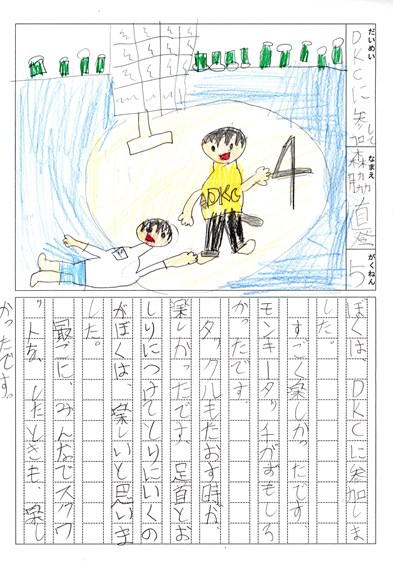 だいめい
DKCに参加して
なまえ
森脇直
がくねん
5
DKC
4
ぼくは、DKCに参加しま
した。
すごく楽しかったです。
モンキータッチがおもしろ
かったです。
タックルもたおす時が、
楽しかったです。足首とお
しりにつけてとりにいくの
がほくは、楽しいと思いま
した。
最ごに、みんなでスクワ
ットを、したときも、楽し
かったです。